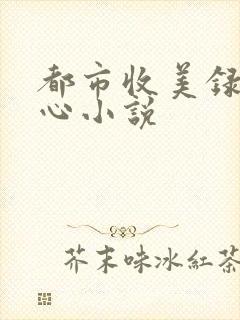 都市收美録
心小說
芥末味冰紅茶